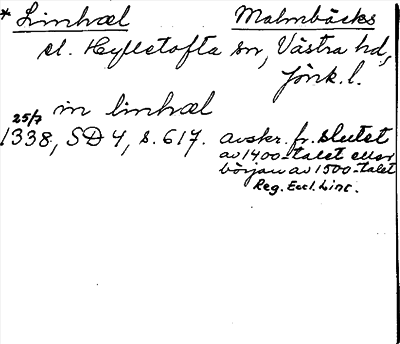 * Limhæl Malmbäcks
el. Hylletofta sn, Västra hd,
Jönk. l.
in limhæl
25/7 1338, SD 4, s. 617. avskr. fr. slutet
av 1400-talet eller
början av 1500-talet
Reg. Eccl. Linc.